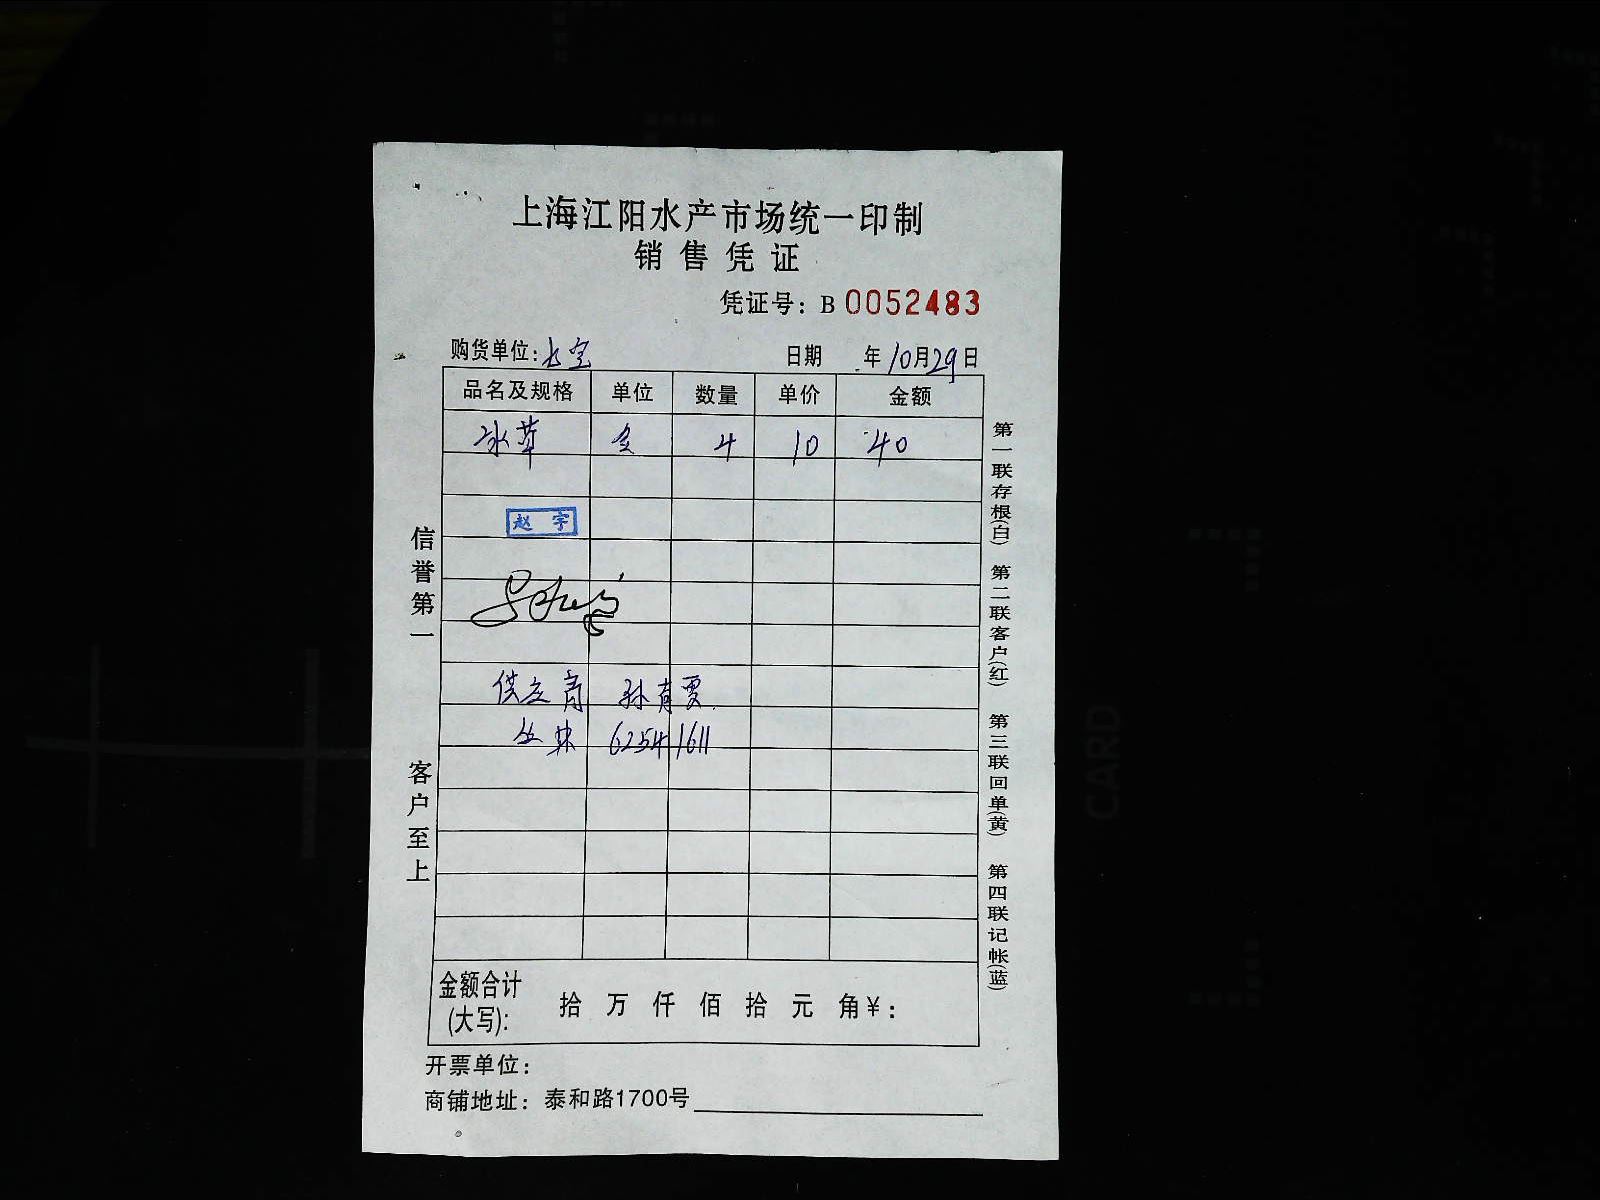 上海江阳水产市场统一印制
销售凭证
凭证号：B 0052483
购货单位： 日期 年10月29日
品名及规格 单位 数量 单价 金额
冰草 4 10 40
赵宇
供应商 孙育雯
丛林 62541611
金额合计(大写)： 拾 万 仟 佰 拾 元 角￥：
开票单位：
商铺地址：泰和路1700号
信誉第一 客户至上
第一联存根(白) 第二联客户(红) 第三联回单(黄) 第四联记帐(蓝)
CARD